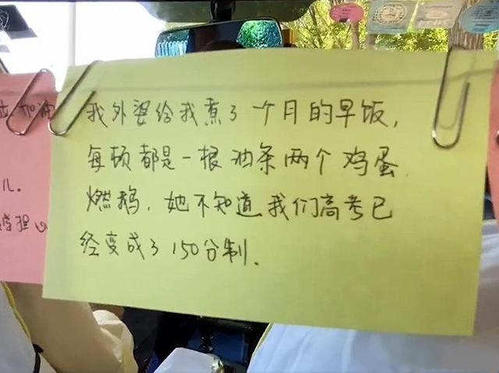 我外婆给我煮了 个月的早饭,
每顿都是一根油条两个鸡蛋.
燃鹅,她不知道我们高考已
经变成了150分制.
加油
儿.